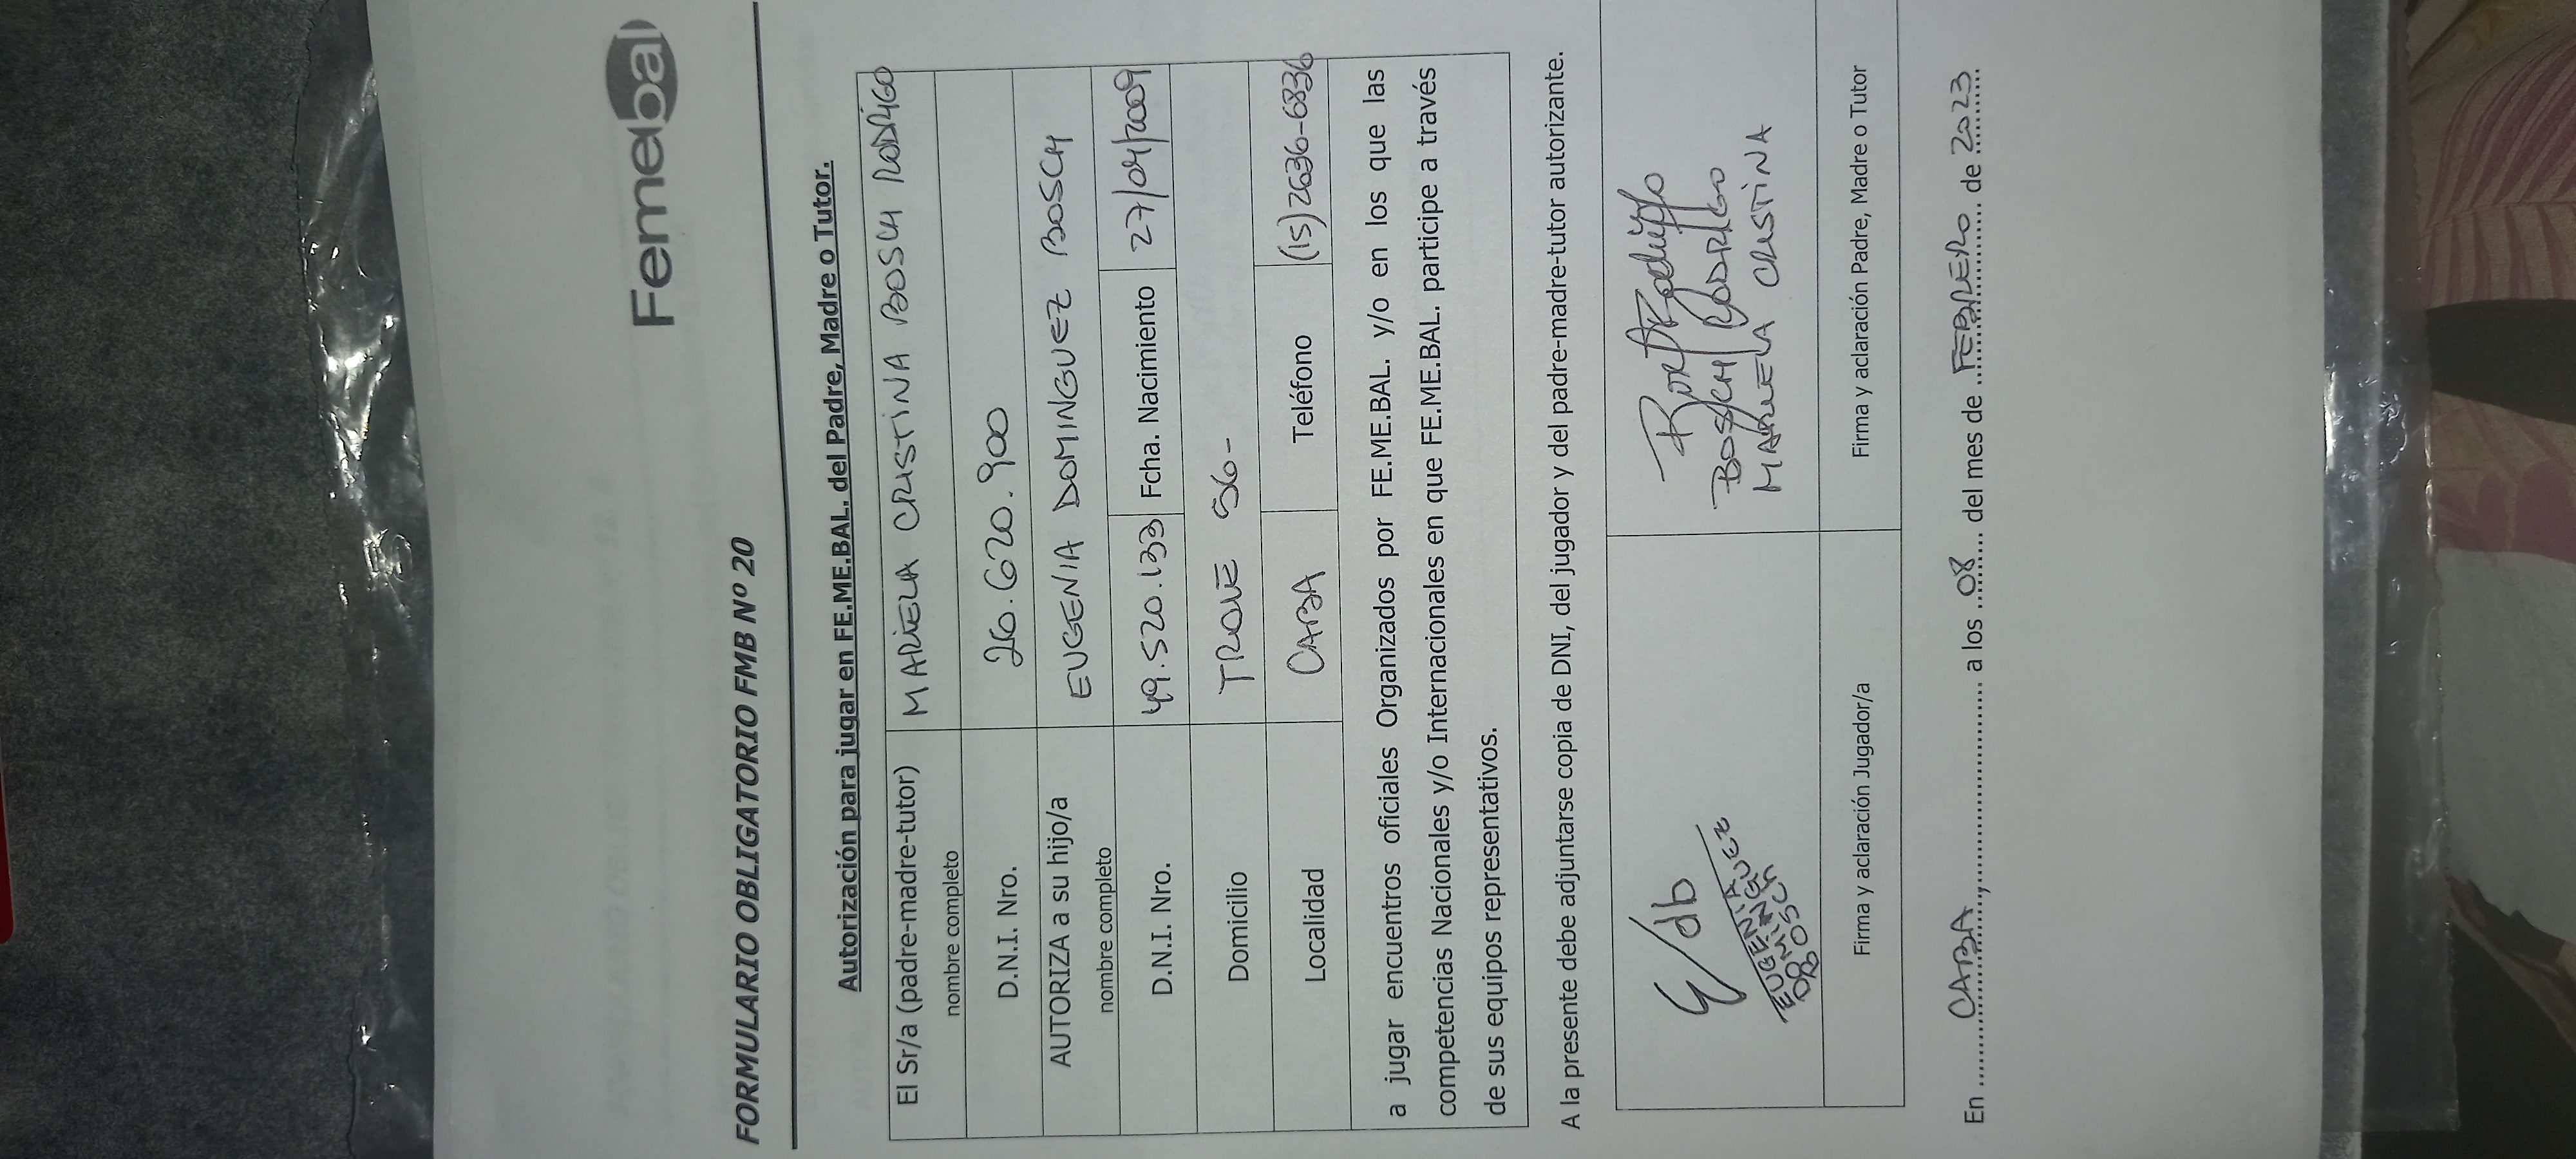 Femebal
FORMULARIO OBLIGATORIO FMB Nº 20
Autorización para jugar en FE.ME.BAL. del Padre, Madre o Tutor.
El Sr/a (padre-madre-tutor) nombre completo MARIELA CRISTINA BOSCH RODRIGO
D.N.I. Nro. 26.620.900
AUTORIZA a su hijo/a nombre completo EUGENIA DOMINGUEZ BOSCH
D.N.I. Nro. 49.520.133 Fcha. Nacimiento 27/04/2009
Domicilio TROLE 56-
Localidad CABA Teléfono (15)2636-6836
a jugar encuentros oficiales Organizados por FE.ME.BAL. y/o en los que las
competencias Nacionales y/o Internacionales en que FE.ME.BAL. participe a través
de sus equipos representativos.
A la presente debe adjuntarse copia de DNI, del jugador y del padre-madre-tutor autorizante.
E/db
EUGENIA
DOMINGUEZ
BOSCH
BOSCH RODRIGO
MARIELA CRISTINA
Firma y aclaración Jugador/a Firma y aclaración Padre, Madre o Tutor
En CABA, a los 08 del mes de FEBRERO de 2023